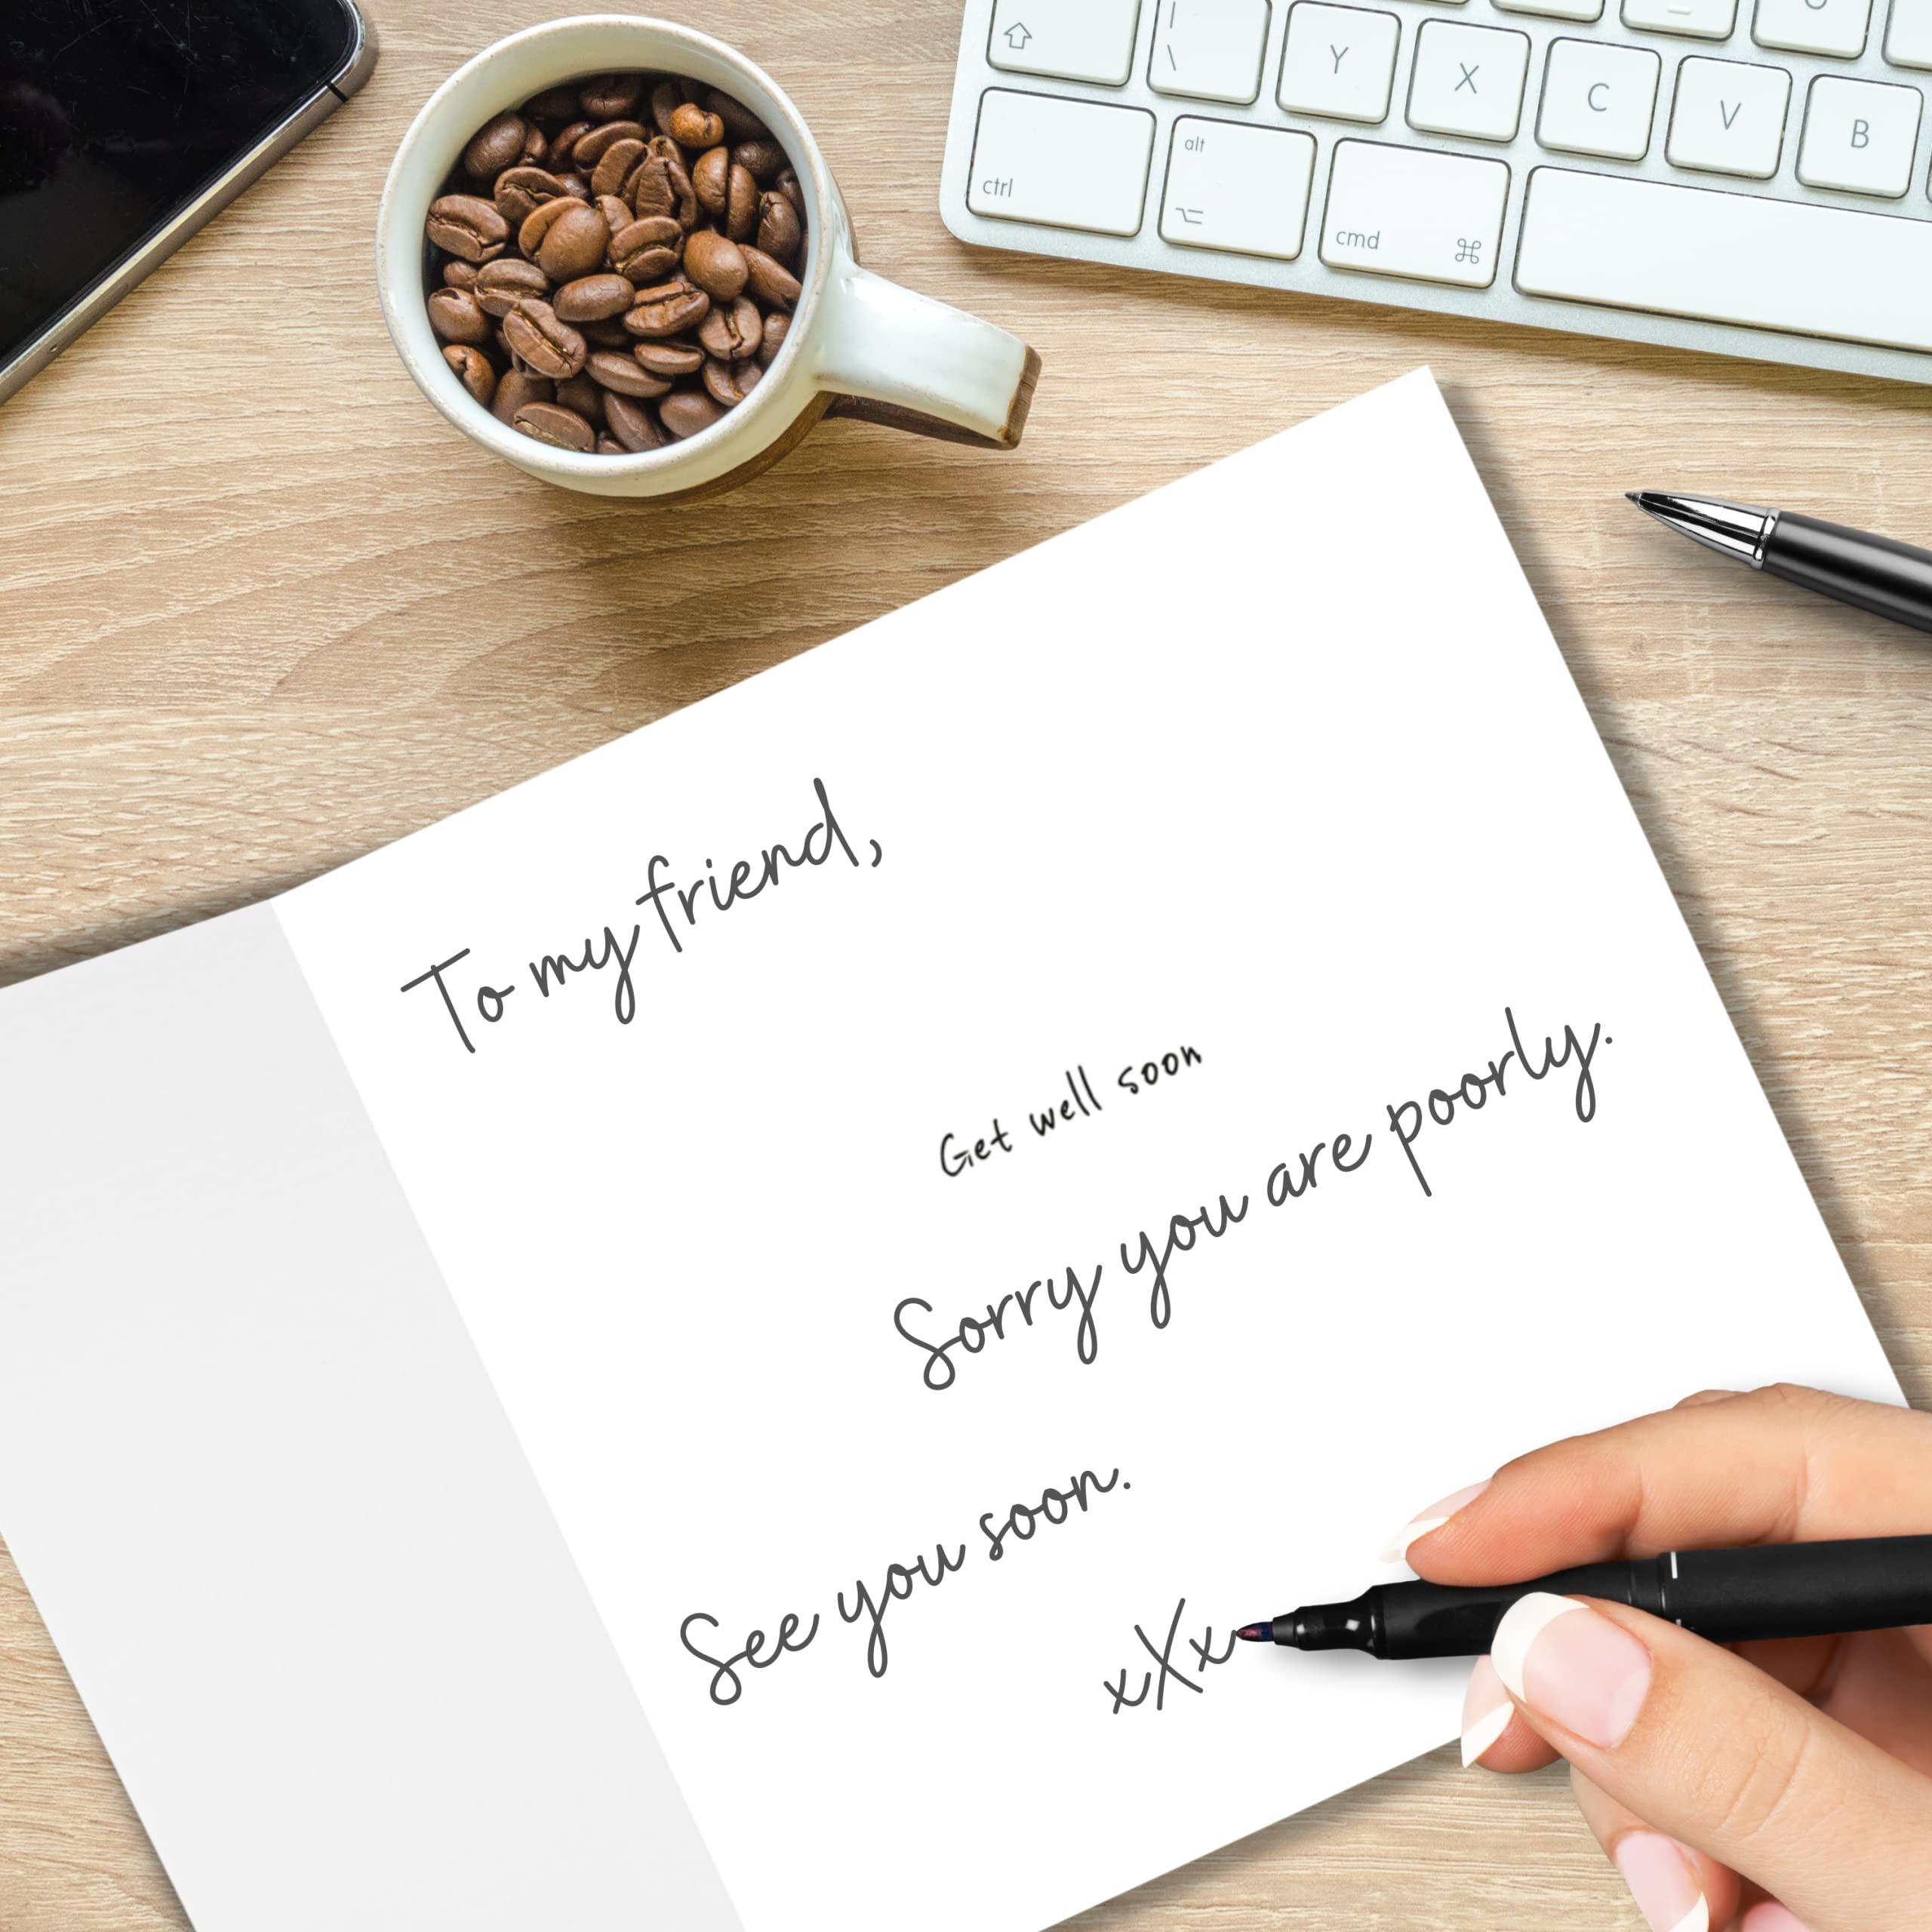 Y X C V B
ctrl alt cmd ⌘
To my friend,
Get well soon
Sorry you are poorly.
See you soon.
xXx